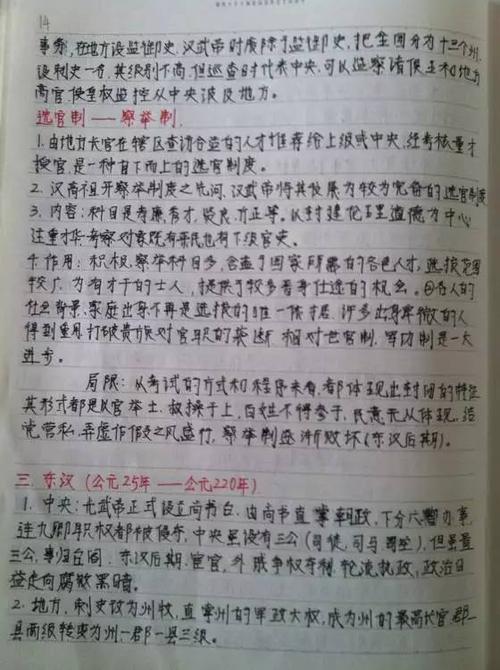 14
事务,在地方设监御史,汉武帝时废除了监御史,把全国分为十三个州,
设刺史一名,其级别不高,但巡查时代表中央,可以监察诸侯王和地方
高官,使皇权监控从中央波及地方。
选官制——察举制.
1.由地方长官在辖区查访合适的人才推荐给上级或中央,经考核量才
授官,是一种自下而上的选官制度。
2.汉高祖开察举制度之先河,汉武帝将其发展为较为完备的选官制度
3.内容:科目是孝廉茂才,贤良,方正等。以封建伦理道德为中心
注重才华,考察对象既有平民也有下级官吏。
4.作用:积极,察举科目多,含盖了国家所需的各色人才,选拔范围
较广,为有才干的士人,提供了较多晋身仕途的机会。因各人的
社会背景,家庭出身不再是选拔的唯一依据,许多出身卑微的人
得到重用,打破贵族对官职的垄断,相对世官制,军功制是一大
进步。
局限:从考试的方式和程序来看,都体现出封闭的特征
其形式都是以官举士,权操于上,百姓不得参予,民意无从体现,结
党营私,弄虚作假之风盛行,察举制逐渐败坏(东汉后期)。
三.东汉(公元25年——公元220年)
1.中央:光武帝正式设立尚书台,由尚书直掌朝政,下分六曹办事,
连九卿职权都被侵夺,中央虽设有三公(司徒,司马,司空),但虽置
三公,事归台阁.东汉后期,宦官,外戚争权夺利,轮流执政,政治日
益走向腐败黑暗。
2.地方,刺史改为州牧,直掌州的军政大权,成为州的最高长官,郡一
县两级转变为州一郡一县三级。